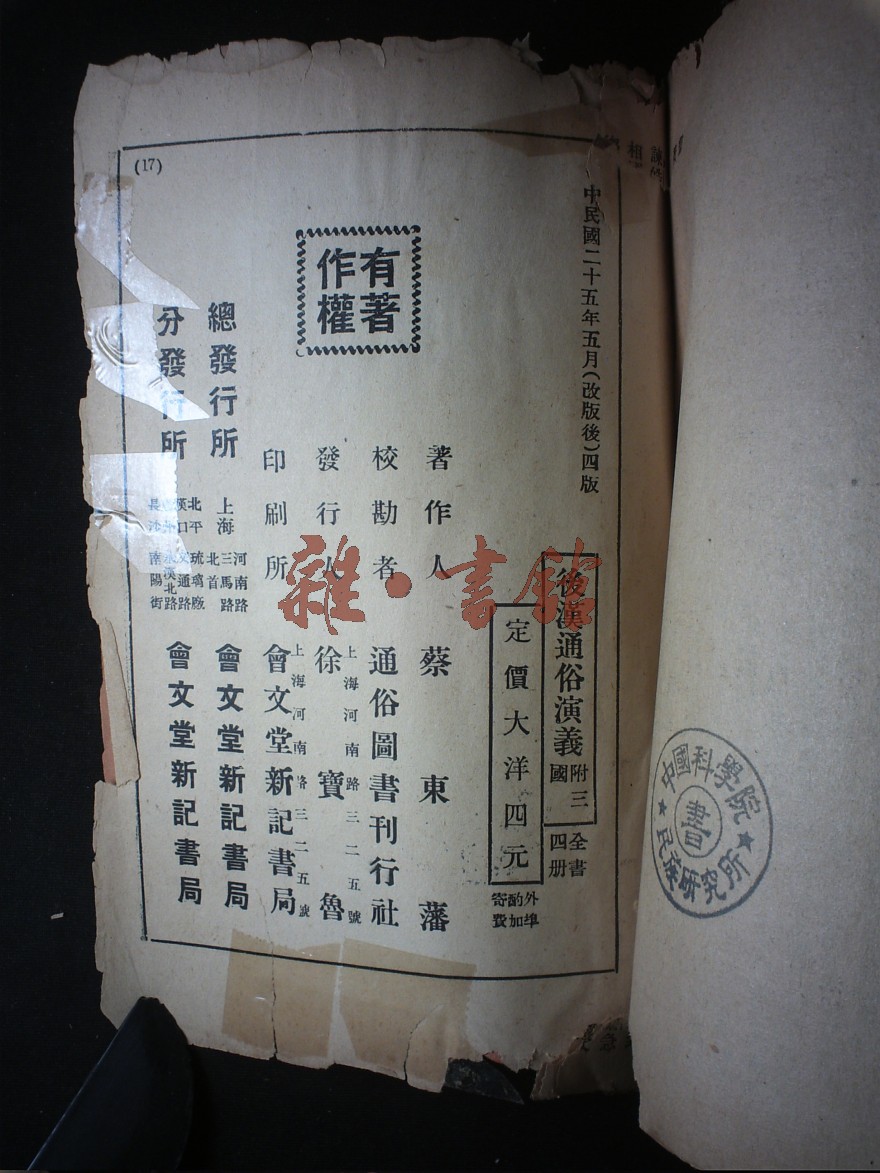 中民國二十五年五月(改版後)四版
後漢通俗演義
附三國
全書四册
定價大洋四元
外埠酌加寄費
著作人 蔡東藩
校勘者 通俗圖書刊行社
發行人 徐寶魯
上海河南路三二五號
印刷所 會文堂新記書局
上海河南路三二五號
有著作權
總發行所 上海 河南路三馬路北首 會文堂新記書局
分發行所 北平 琉璃廠
漢口 通路
永漢北路
長沙 南陽街
會文堂新記書局
(17)
雜·書館
中國科學院民族研究所
書